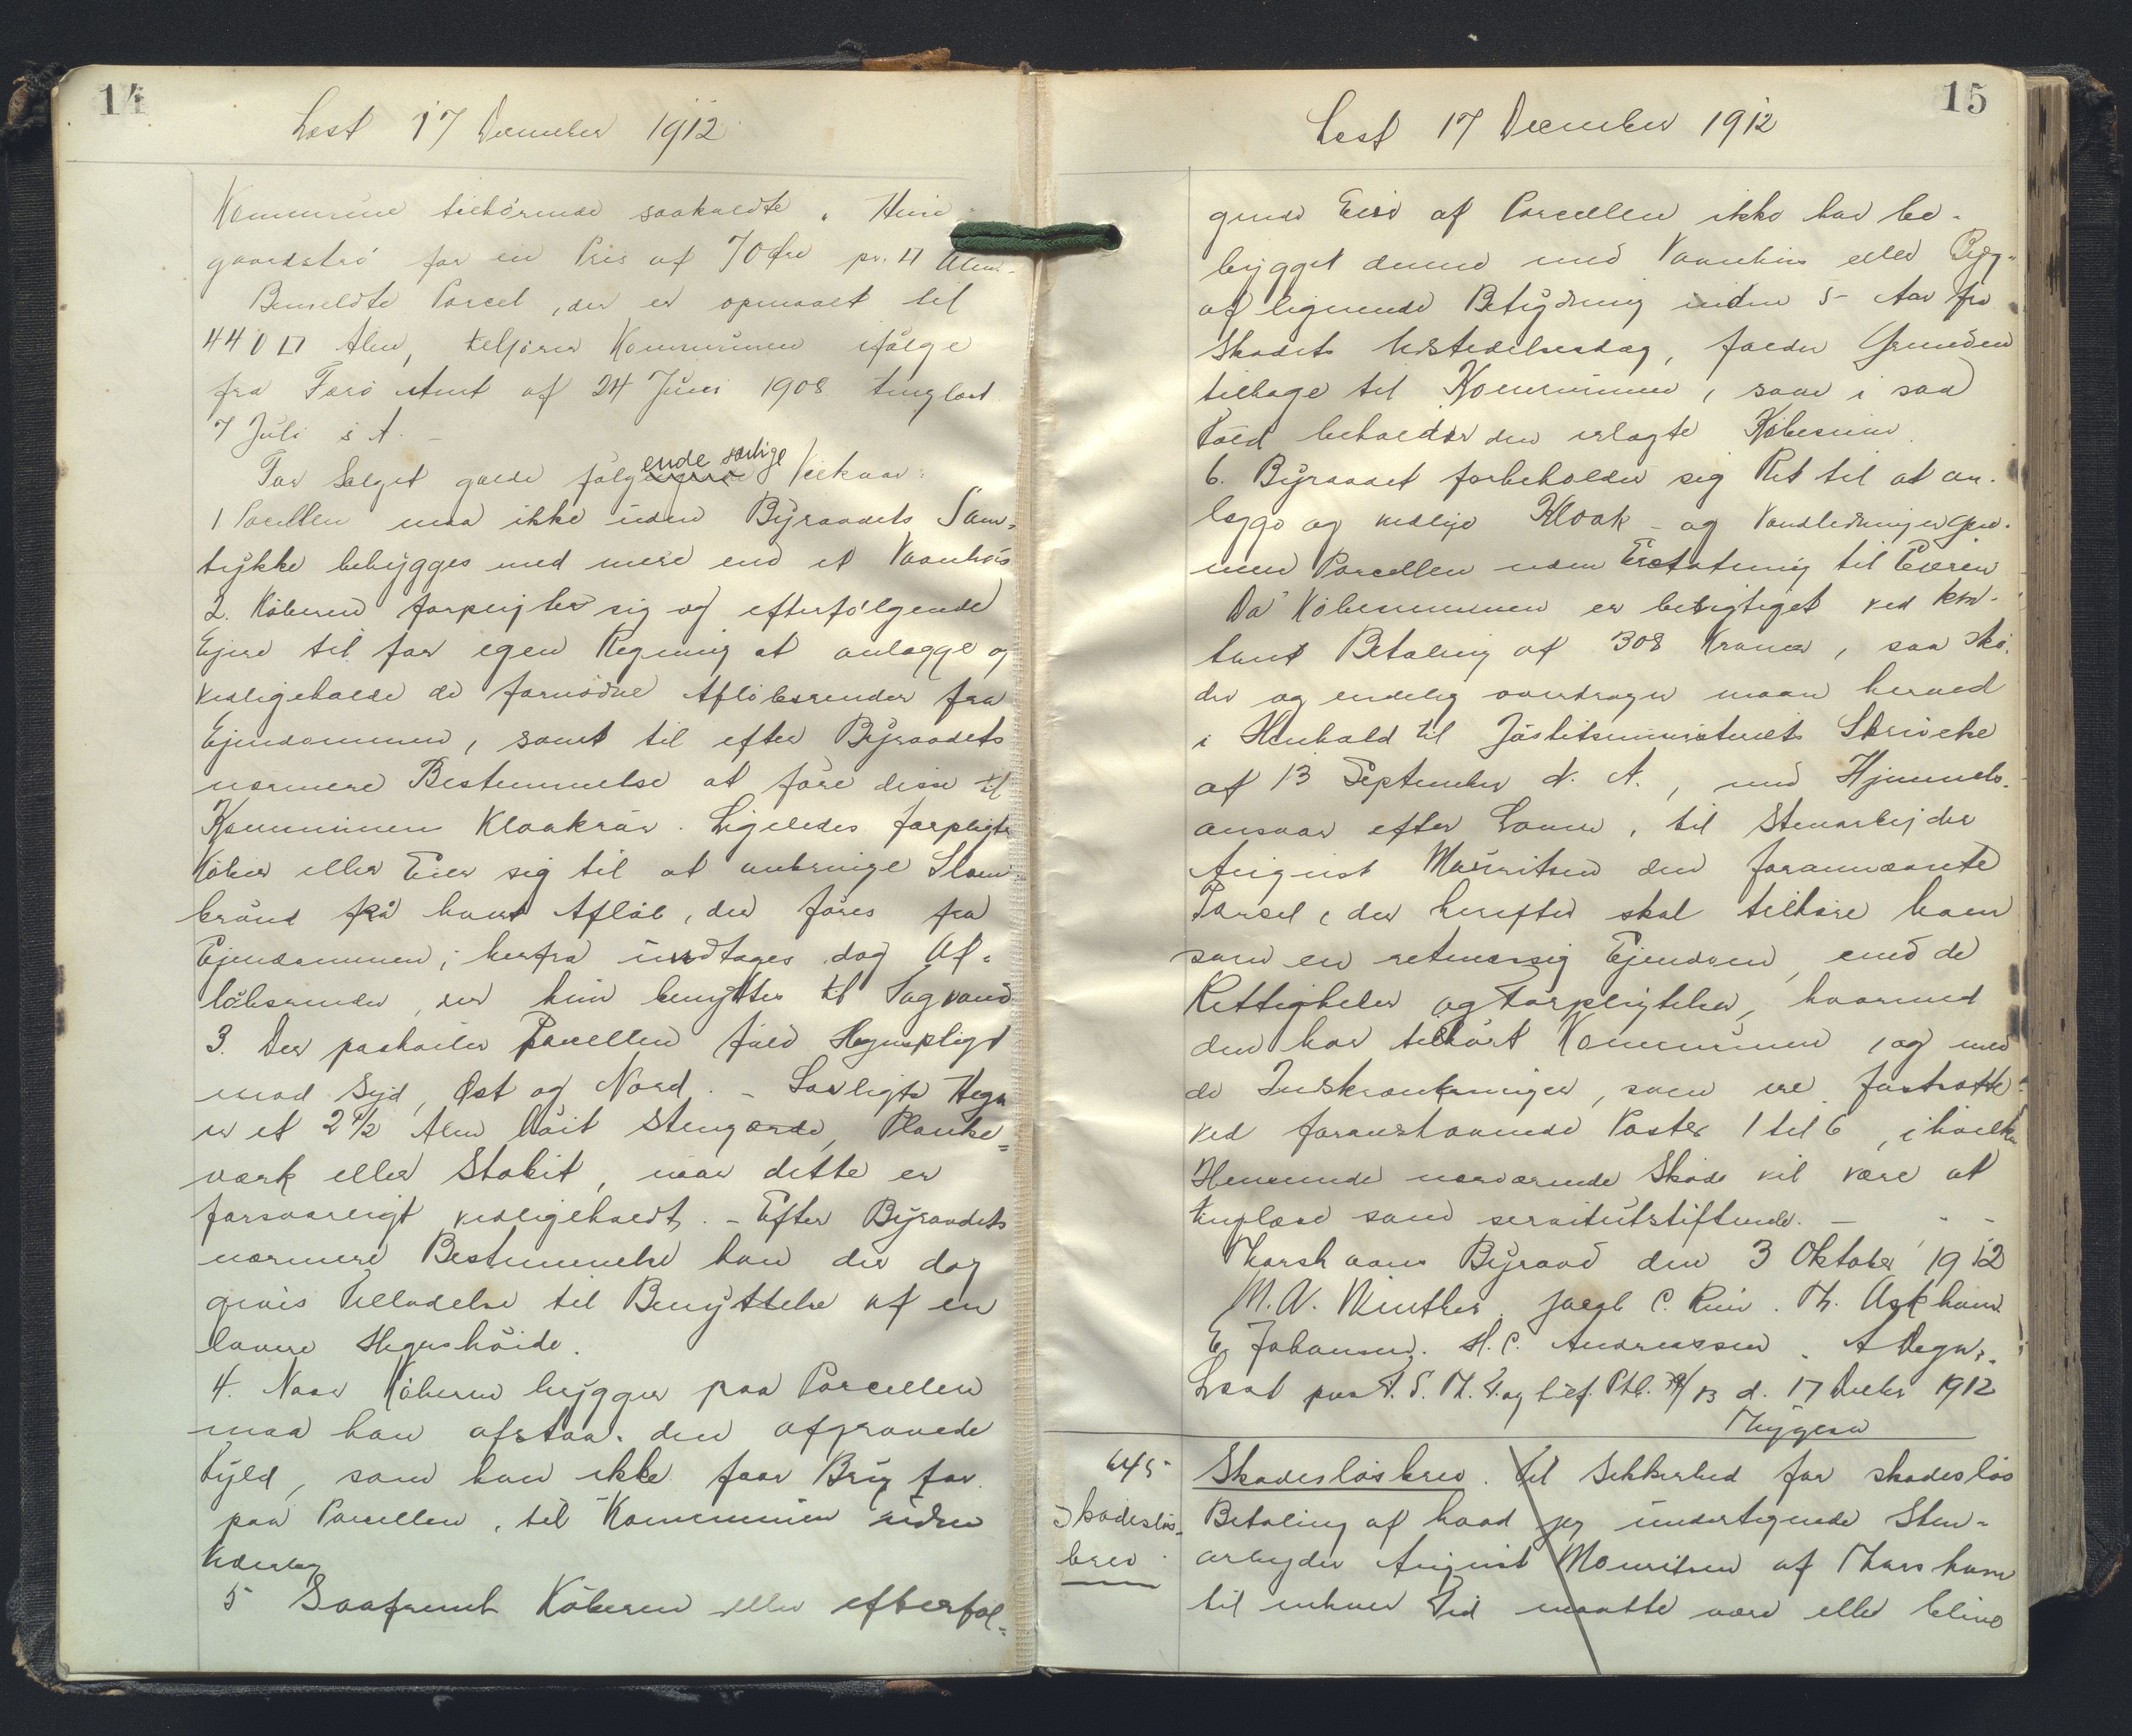 14
Læst 17 December 1912
Kommune tilhørende saakaldte "Hui-
gaardstrø for en Pris af 70 Øre pr. □ Alen.
Bemeldte Parcel, der er opmaalt til
440 □ Alen, tilhører Kommunen ifølge
fra Færø Amt af 24 Juni 1908 tinglæst
7 Juli s. A. –
For Salget gælde følgende særlige Vilkaar:
1. Parcellen maa ikke uden Byraadets Sam-
tykke bebygges med mere end et Vaanhus
2. Køberen forpligter sig og efterfølgende
Ejere til for egen Regning at anlægge og
vedligeholde de fornødne Afløbsrender fra
Ejendommen, samt til efter Byraadets
nærmere Bestemmelse at føre disse til
Kommunens Kloakrør. Ligeledes forpligter
Køber eller Eier sig til at anbringe Slam-
brønd på hvert Afløb, der føres fra
Ejendommen; herfra undtages dog Af-
løbsrender, der kun benyttes til Tagvand
3. Der paahviler Parcellen fuld Hegnspligt
mod Syd, Øst og Nord. – Lovligt Hegn
er et 2½ Alen høit Stengærde, Planke-
værk eller Stakit, naar dette er
forsvarligt vedligeholdt. – Efter Byraadets
nærmere Bestemmelse kan der dog
givis Tilladelse til Benyttelse af en
lavere Hegnshøide.
4. Naar Køberen bygger paa Parcellen
maa han afstaa den afgravede
Fyld, som han ikke faar Brug for
paa Parcellen, til Kommunen uden
Vederlag
5 Saafremt Køberen eller efterføl-
15
Læst 17 December 1912
gende Eiere af Parcellen ikke har be-
bygget denne med Vaanhus eller Byg-
af lignende Betydning inden 5 Aar fra
Skødets Udstedelsesdag, falder Grunden
tilbage til Kommunen, som i saa
Fald beholder den erlagte Købesum.
6. Byraadet forbeholder sig Ret til at an-
lægge og vedlige Kloak- og Vandledninger gen-
nem Parcellen uden Erstatning til Eieren
Da Købesummen er berigtiget ved kon-
tant Betaling af 308 Kroner, saa skø-
der og endelig overdrager man herved
i Henhold til Justitsministeriets Skrivelse
af 13 September d. A., med Hjemmels-
ansvar efter Loven, til Stenarbejder
August Mauritsen den forannævnte
Parcel, der herefter skal tilhøre ham
som en retmæssig Ejendom, med de
Rettigheder og Forpligtelser, hvormed
den har tilhørt Kommunen, og med
de Indskrænkninger, som ere fastsatte
ved foranstaaende Poster 1 til 6, i hvilken
Henseende nærværende Skøde vil være at
tinglæse som servitutstiftende. –
Thorshavns Byraad den 3 Oktober 1912
M. A. Winther. Jacob C. Rein. Th. Askham
E. Johansen. H. C. Andreassen. A Degn.
Læst paa S. S. Th. T. og d. 17 Decbr 1912
Thygesen
645
Skadesløs-
brev
Skadesløsbrev. Til Sikkerhed for skadesløs
Betaling af hvad jeg undertegnede Sten-
arbeyder August Mouritsen af Thorshavn
til enhver Tid maatte være eller blive